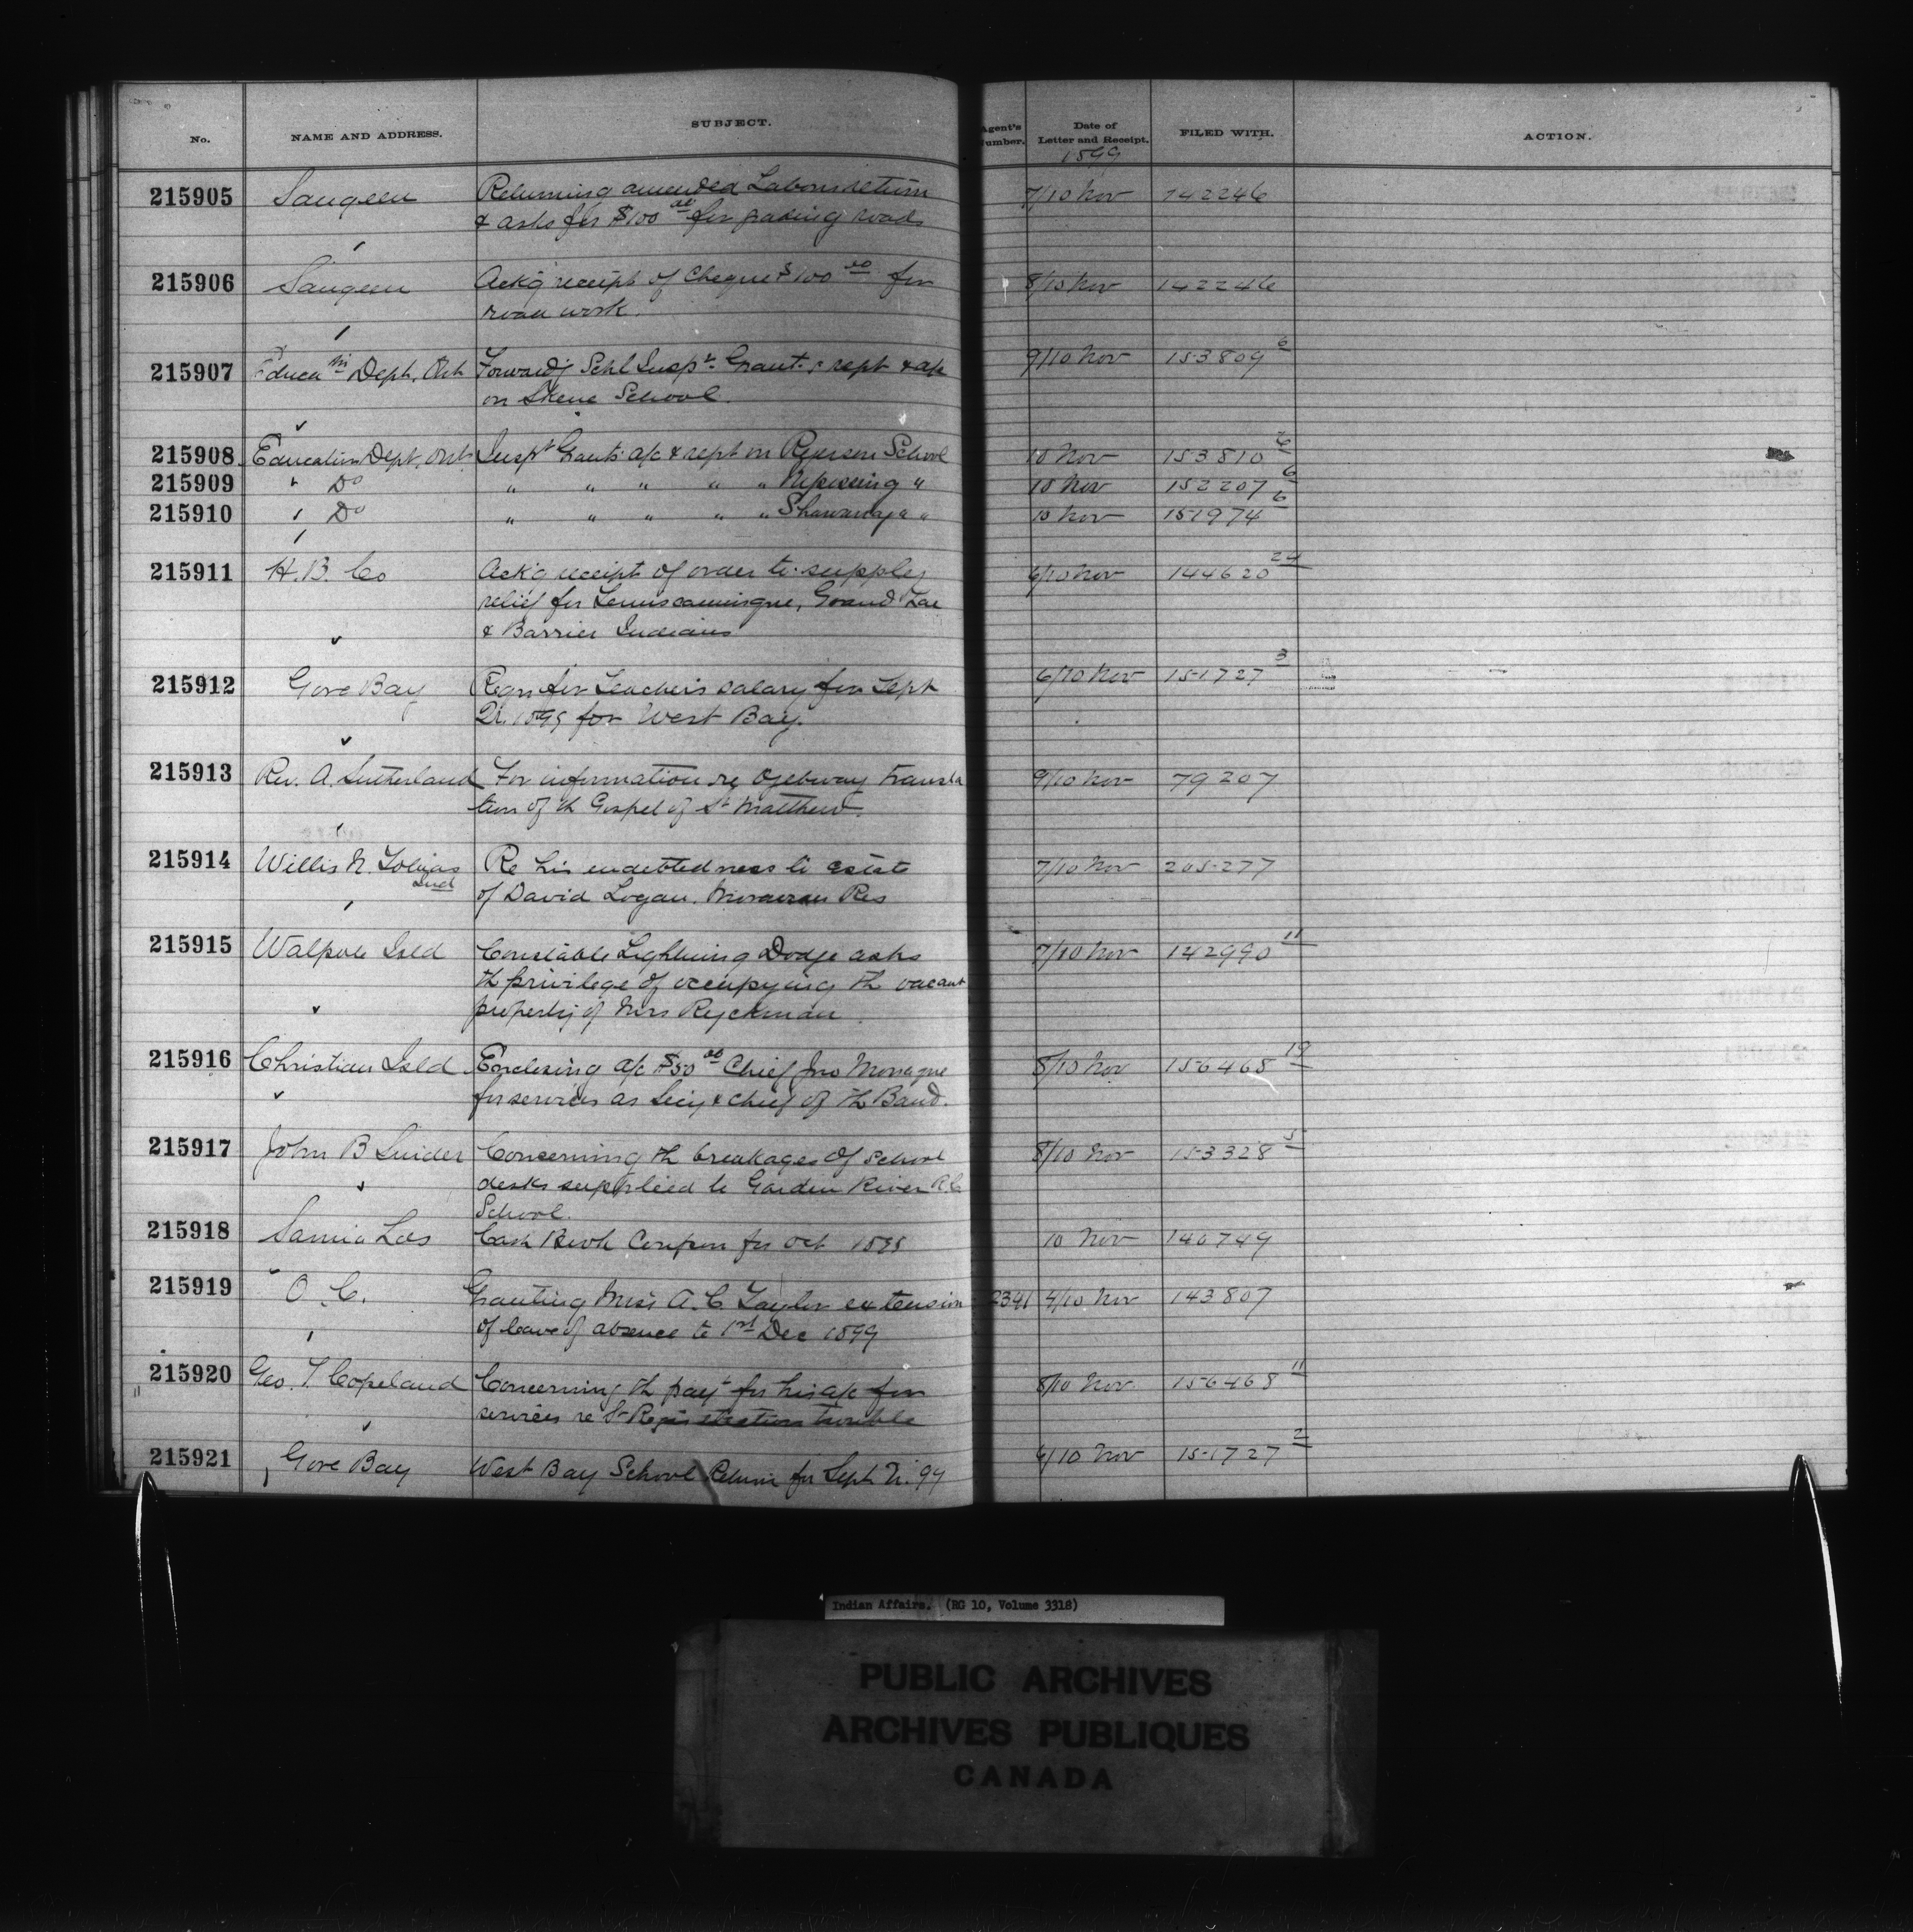 No. NAME AND ADDRESS. SUBJECT. Agent's Number. Date of Letter and Receipt. FILED WITH. ACTION.
1899
215905 Saugeen Returning amended Labour return 7/10 Nov 142246
& asks for $100 00 for grading roads
215906 Saugeen Ack'g receipt of Cheque $100 00 for 8/10 Nov 142246
road work.
215907 Educa tn Dept. Ont Forwardg Schl Inspr Grant's rept & a/c 9/10 Nov 153809 6
on Skene School.
215908 Education Dept. Ont Inspr Grants a/c & rept on Ryerson School 10 Nov 153810 6
215909 " Do " " " " " Nipissing " 10 Nov 152207 6
215910 Do " " " " " Shawanaga " 10 Nov 151974 6
215911 H. B. Co Ack'g receipt of order to supply 6/10 Nov 144620 24
relief for Temiscamingue, Grand Lac
& Barrier Indians
215912 Gore Bay Reqn for Teacher's salary for Sept 6/10 Nov 151727 3
Qr. 1899 for West Bay.
215913 Rev. A. Sutherland For information re Ojebway transla 9/10 Nov 79207
tion of th Gospel of St Matthew.
215914 Willis N. Tobias Re his indebtedness to estate 7/10 Nov 205277
Ind
of David Logan. Moravian Res
215915 Walpole Isld Constable Lightning Dodge asks 7/10 Nov 142990 11
th privilege of occupying th vacant
property of Mrs Ryckman
215916 Christian Isld Enclosing a/c $50 00 Chief Jno Monague 8/10 Nov 156468 19
for services as Secy & chief of th Band.
215917 John B Snider Concerning th breakages of school 8/10 Nov 153328 5
desks supplied to Garden River R.C.
School.
215918 Sarnia Lds Cash Book Coupon for Oct 1899 10 Nov 140749
215919 O. C. Granting Miss A. C. Taylor extension 2341 4/10 Nov 143807
of leave of absence to 1st Dec 1899
215920 Geo. T. Copeland Concerning th payt for his a/c for 8/10 Nov 156468 11
services re St Regis election trouble
215921 Gore Bay West Bay School Return for Sept Qr. 99 6/10 Nov 151727 2
Indian Affairs. (RG 10, Volume 3318)
PUBLIC ARCHIVES
ARCHIVES PUBLIQUES
CANADA